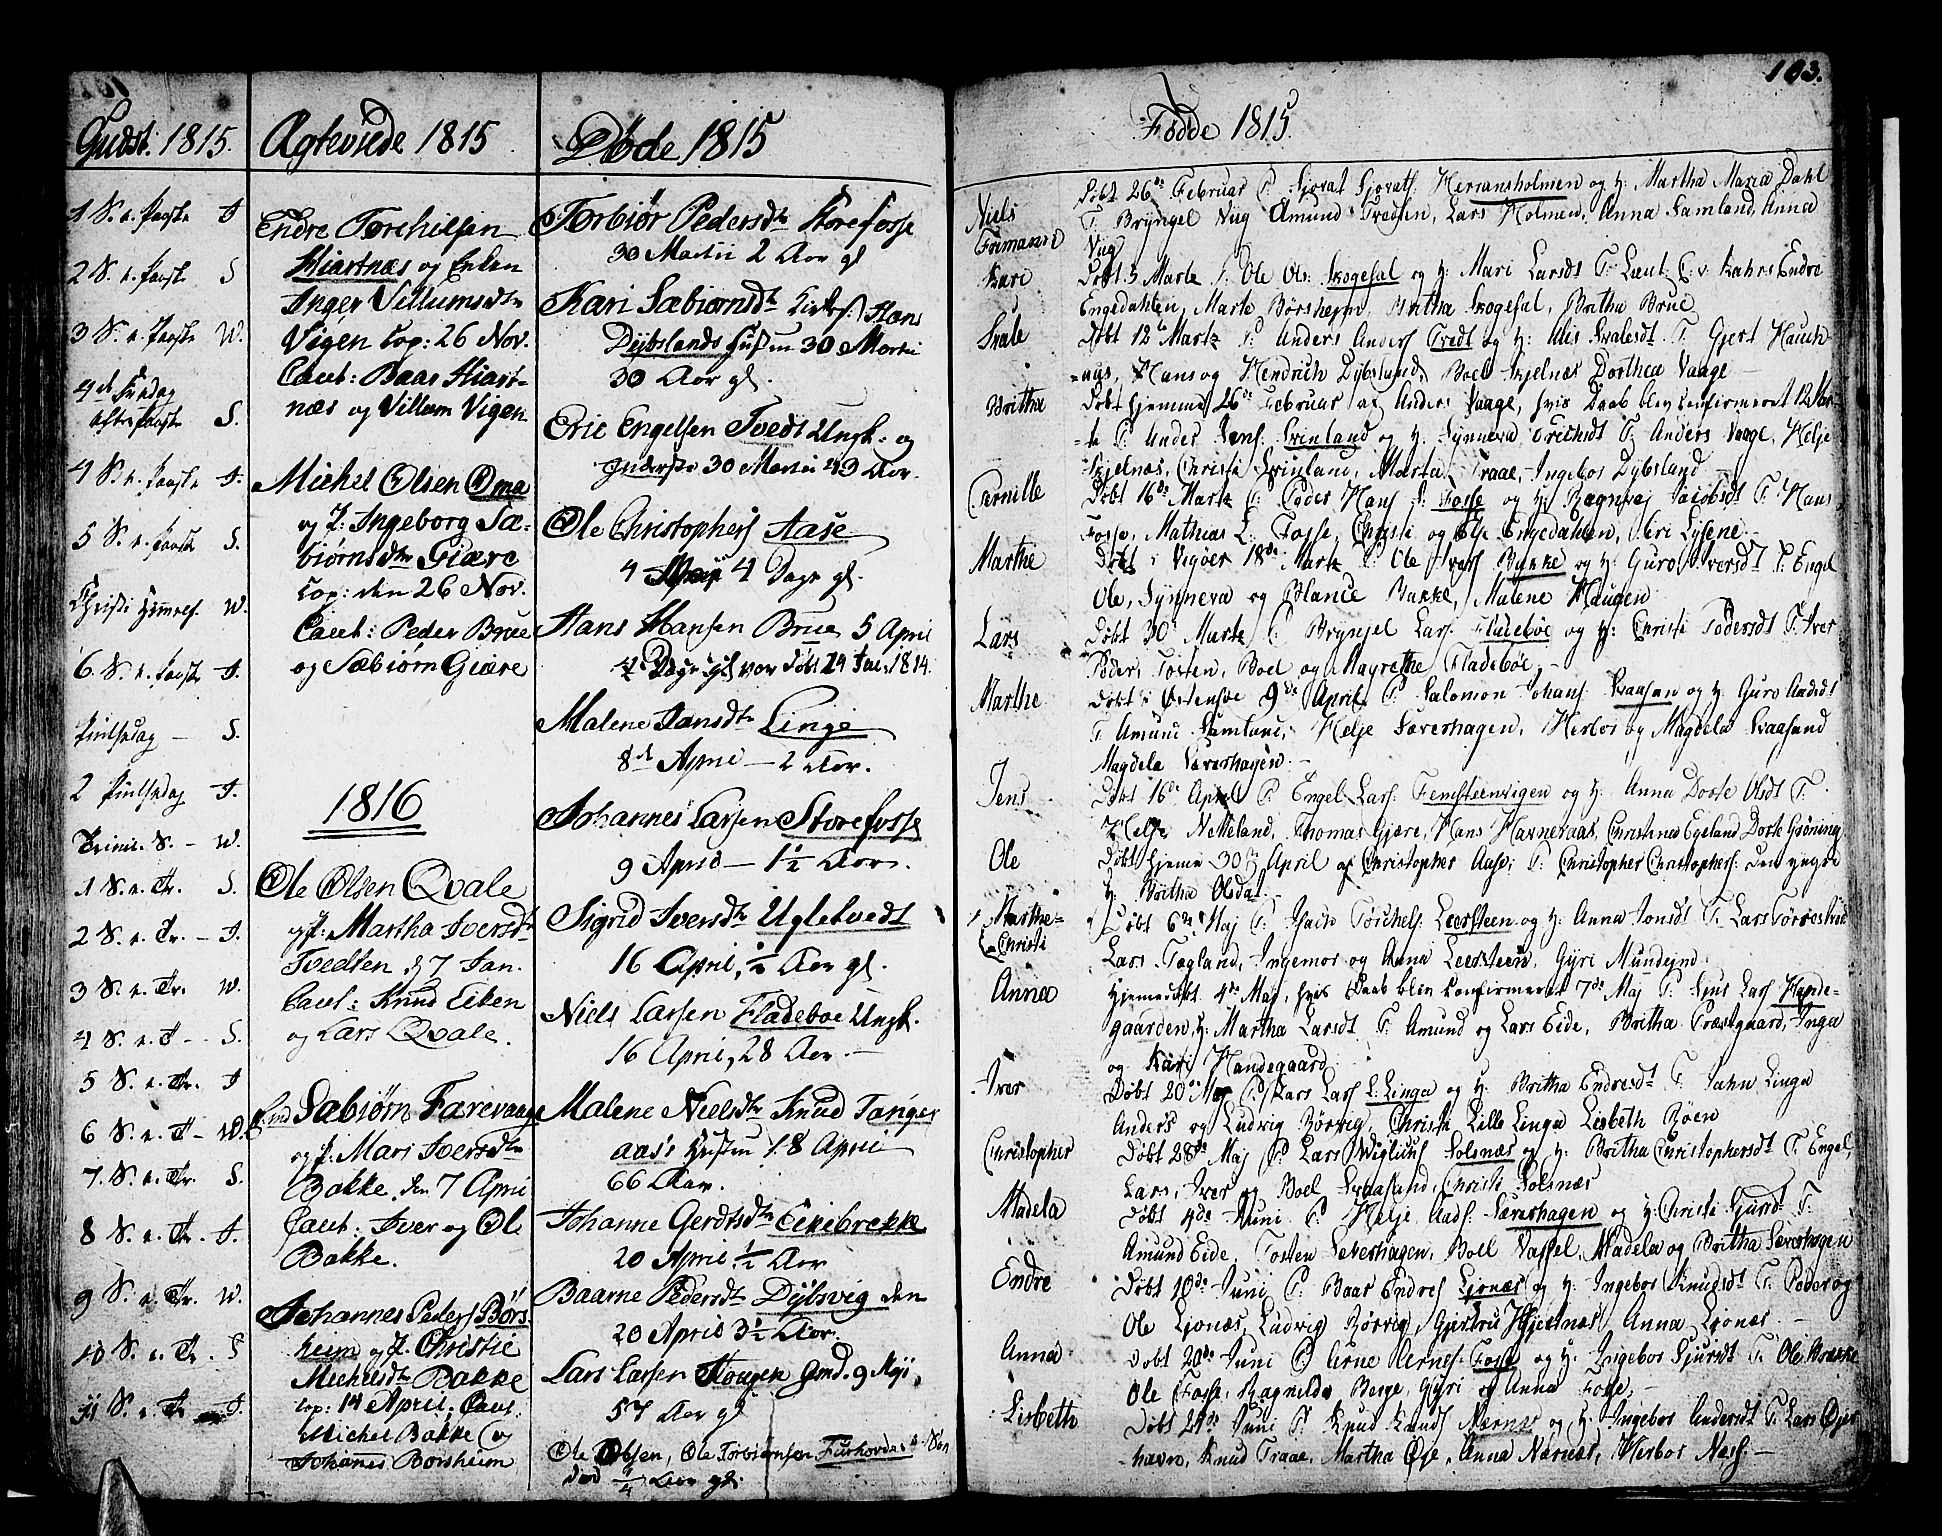 Gudst: 1815.
1 S. e. Paaske J.
2 S. e. Paaske S.
3 S. e. Paaske W.
4de Fredag
efter Paaske S.
4 S. e. Paaske J.
5 S. e. Paaske S.
Christi Himelf. W.
6 S. e. Paaske J.
Pintsedag — S.
2 Pintsedag J.
Trinit. S. — W.
1 S. e. Tr. S.
2 S. e. Tr. — J.
3 S. e. Tr. W.
4 S. e. T. - S.
5 S. e. Tr. J
6 S. e. T — W.
7 S. e. Tr. S.
8 S. e. Tr. J.
9 S. e. Tr. W.
10 S. e. Tr. S
11 S. e. Tr J.
Ægteviede 1815
Endre Torchilsen
Hiartnæs og Enken
Inger Villumsdtr
Vigen cop: 26 Nov.
Caut: Baar Hiart-
næs og Villum Vigen
Michel Olsen Oma
og P: Ingeborg Sæ-
biørnsdtr Giære
cop: den 26 Nov.
Caut: Peder Brue
og Sæbiørn Giære
1816
Ole Olsen Qvale
og P: Martha Iversdtr
Tvedten d 7 Jan.
Caut: Knud Eiken
og Lars Qvale.
Sæbiørn Færevaage
og P: Mari Iversdtr
Bakke. den 7 April
Caut: Iver og Ole
Bakke.
Johannes Peders Børs-
heim og P. Christie
Michelsdtr Bakke
cop: 14 April. Caut
Michel Bakke og
Johanes Borsheim
Døde 1815
Torbiør Pedersdtr Storefosse
30 Martii 2 Aar gl
Kari Sæbiørnsdtr Hans
Dybslands Hustru 30 Martii
30 Aar gl.
Eric Engelsen Tvedt Ungk. og
Inderste 30 Martii 43 Aar.
Ole Christophers Aase
4 April 4 Dage gl.
Hans Hansen Brue 5 April
Dage gl var døbt 24 Jul. 1814.
Malene Jansdtr Linge
8de April — 2 Aar.
Johannes Larsen Storefosse
9 April — 1½ Aar.
Sigrid Iversdtr Ugletvedt
16 April, ½ Aar gl.
Niels Larsen Fladeboe Ungk.
16 April, 28 Aar. —
Malene Nielsdtr Knud Tanger
aas's Hustru 18 April
66 Aar.
Johanne Gerdtsdtr Eikebrekke
20 April ½ Aar
Baarne Pedersdtr Dybsvig den
20 April 3½ Aar.
Lars Larsen Hougen Gmd. 9 Maji
57 Aar gl
Ole Olsen, Ole Torbiørnsen Furhovdes Søn
død ¾ Aar gl.
103.
Fødde 1815.
Niels Døbt 26de Februar P. Sjovat Sjovats. Herransholmen og H. Martha Maria Dahl
T. Bryngel Vug Amund Tredsen, Lars Holmen, Anna Samland, Anna
Vug
Kari Døbt 5 Marts P. Ole Ols. Skogesal og H: Mari Larsdt T. Lieut: C. v. Kahrs Endre
Engedahlen, Marte Børsheim, Britha Skogesal, Britha Brue
Svale Døbt 12te Marts P. Anders Anders Tvedt og H: Alis Svalesdt. T. Gjert Hauch
Hans og Hendrich Dybsland, Boel Skjelnæs Dorthea Vaage —
Britha Døbt hjemme 26de Februar af Anders Vaage, hvis Daab blev confirmeret 12 Mar-
ts P. Ander Jens. Svinland og H. Synneva T. Anders Vaage, Helje
Skjelnæs, Christi Svinland, Marta Traae, Ingebor Dybsland
Carnille Døbt 16de Marts P. Peder Hans S. Fosse og H. Ragnvej Jacobsdt T. Hans
Fosse, Mathias L. Fosse, Christi og Elje Engedahlen, Siri Lysene
Marthe Døbt i Vigøer 18de Marts P. Ole Ivers Bakke og H: Guro Iversdt T. Engel
Ole, Synneva og Blance Bakke, Malene Haugen
Lars Døbt 30 Marts P. Bryngel Lars. Fladeboe og H: Christi Pedersdt T. Iver
Peder, Tosten, Boel og Magrethe Fladeboe. —
Marthe Døbt i Østensøe 9de April P. Salomon Johans. Skaasan og H: Guro Andsdt
T. Amund Samland, Helje Sæverhagen, Herbor og Magdela Skaasand
Magdela Sæverhagen. —
Jens Døbt 16de April P. Engel Lars. Femsteenvigen og H. Anna Dorte Olsdt T.
Helje Netteland, Thomas Gjære, Hans Havneraas, Christense Egeland Dorte Grøning
Ole Døbt hjeme 30te April af Christopher Aase, P. Christopher Christophers. den yngre
H. Britha Olsdat. —
Marthe- Døbt 6te Maj P. Torchels Leersteen og H. Anna Jonsdt T. Lars
Christi Lars Tægland, Ingemor og Anna Leersteen, Gyri Mundejnd
Anna Hjemedøbt 4de Maj, hvis Daab blev konfirmeret 7de Maj P. Sjur Lars Hande-
gaarden, H. Martha Larsdt T. Amund og Lars Eide, Britha Præstgaard, Inga
og Kari Handegaard
Iver Døbt 20de Maj P. Lars Lars L. Linga og H. Britha Endresdt T. Jahn Linga
Anders og Ludvig Rørvig, Christi Lille Linga Lisbeth Røen
Christopher Døbt 28de Maj P. Lars Viglius Solsnæs og H. Britha Christophersdt T. Engel,
Lars, Iver og Boel Skaasand, Christi Solsnæs
Madela Døbt 4de Juni P. Helje Aads. Sæverhagen og H. Christi Sjursdt T.
Amund Eide, Tosten Sæverhagen, Boel Vassel, Madela og Britha Sæverhagen
Endre Døbt 10de Juni P. Baar Endres Ljonæs og H. Ingebor Knudsdt T. Peder og
Ole Ljonæs, Ludvig Rørvig, Gjertru Hjertnæs, Anna Ljonæs. —
Anna Døbt 20de Juni P. Arne Arnes. Fosse og H. Ingebor Sjursdt T. Ole Brække
Ole Fosse, Ragnilda Berge, Gyri og Anna Fosse, —
Lisbeth Døbt 24de Juni P. Knud Knuds Nernæs og H. Ingebor Andersdt T. Lars Øjer
havn, Knud Traae, Martha Øje, Anna Nærnæs, Herbor Næss. —